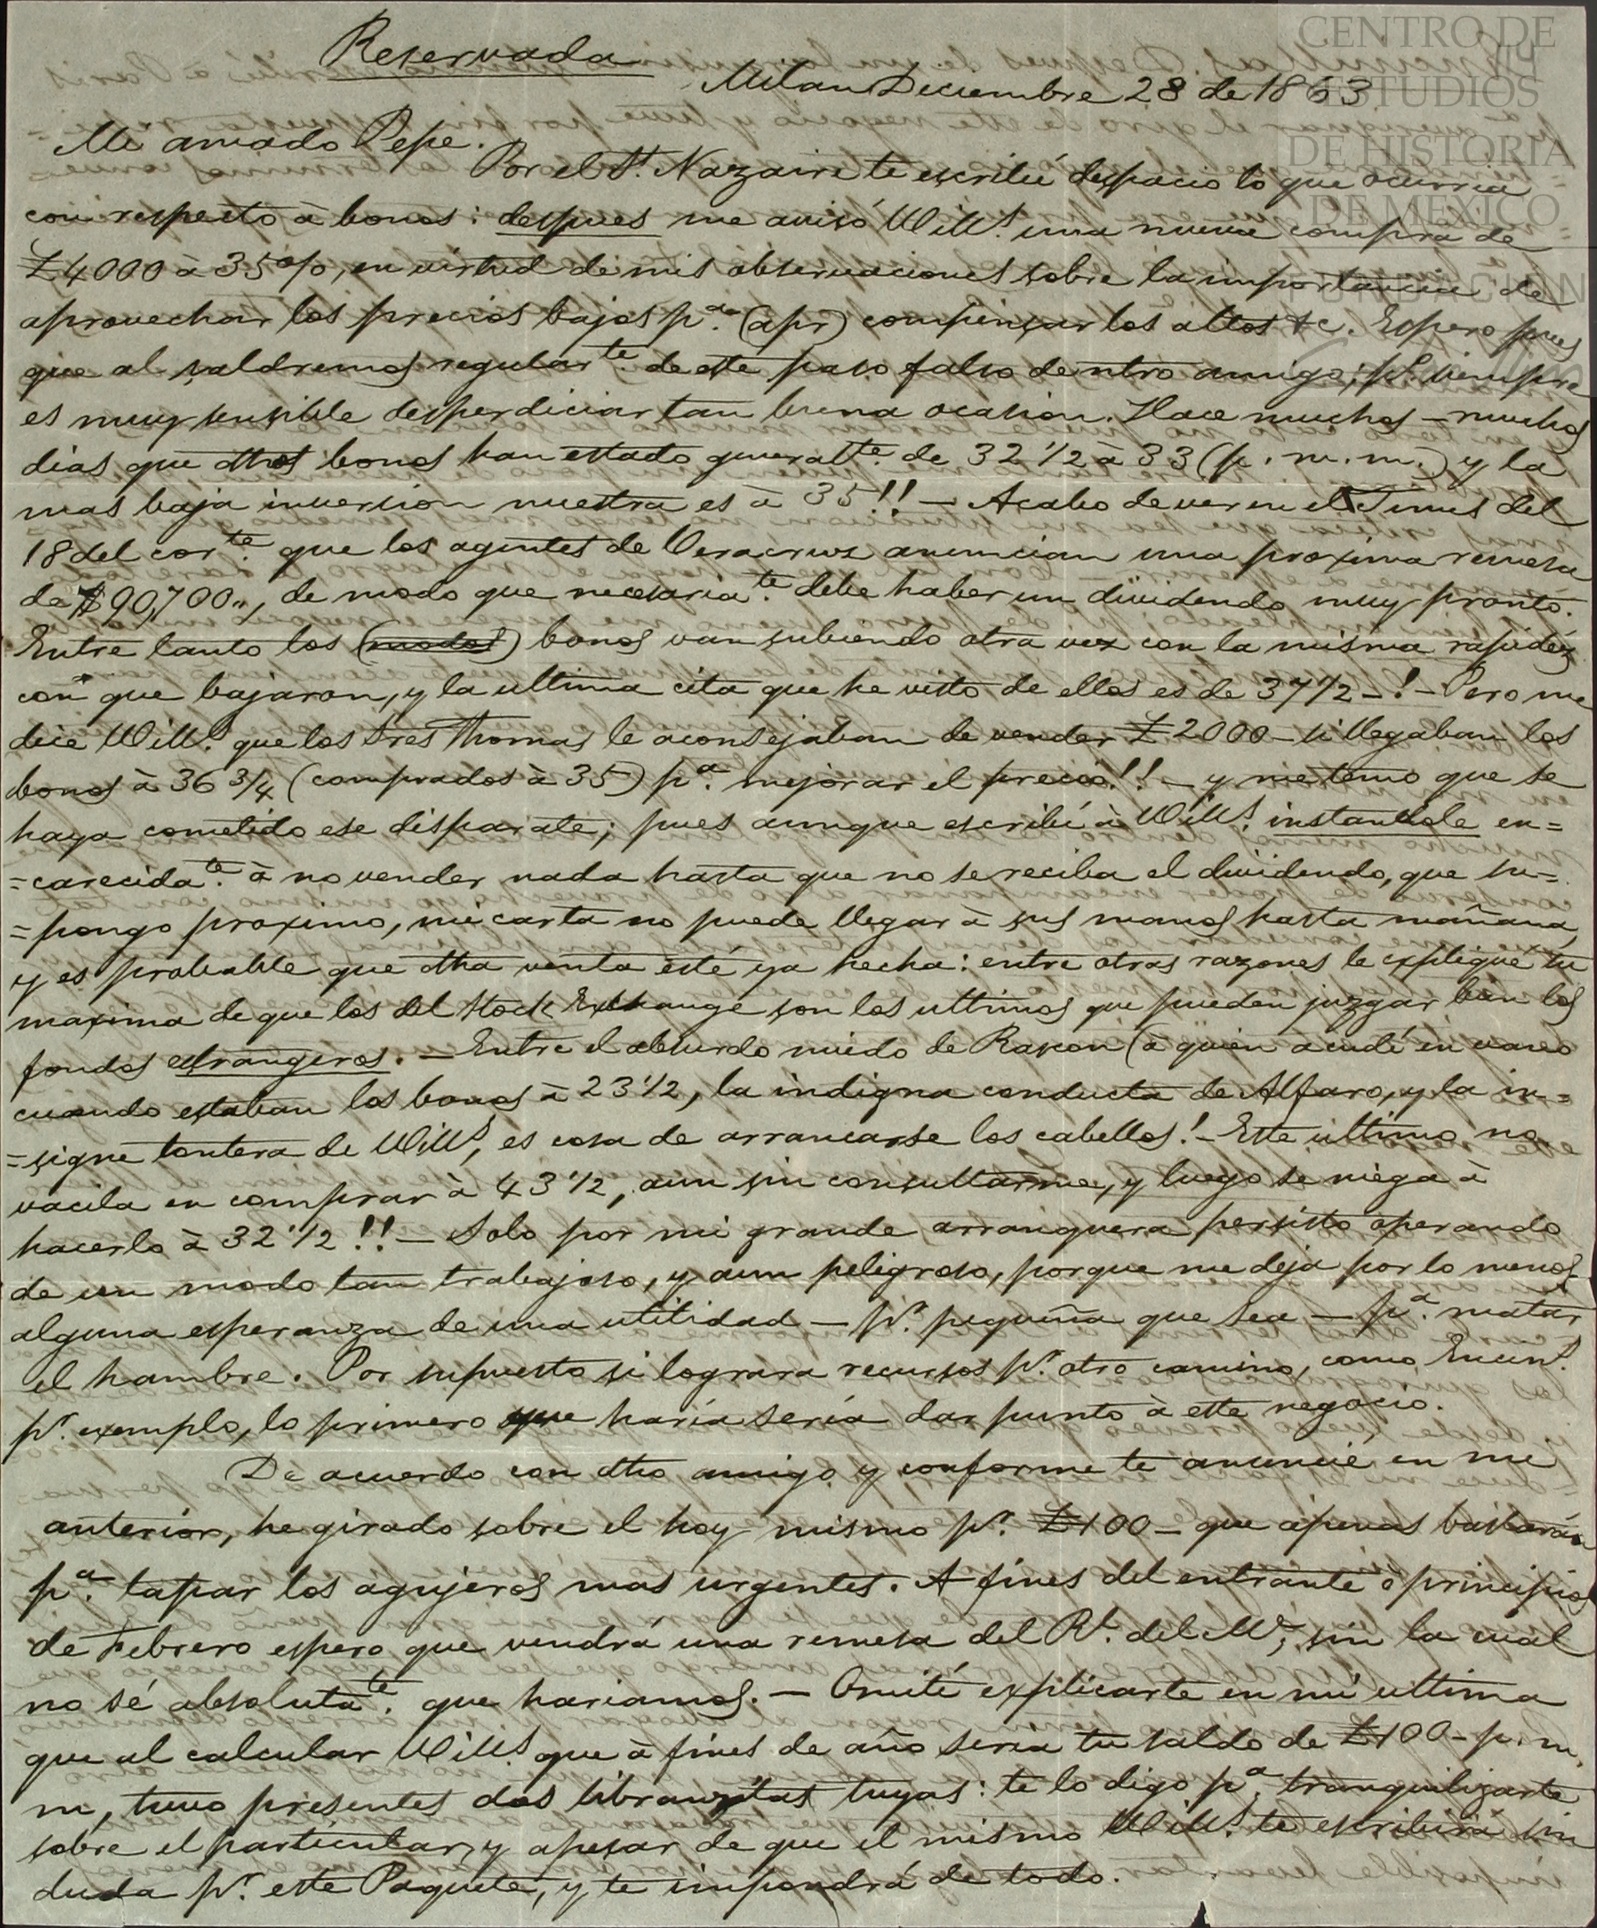 CENTRO DE
ESTUDIOS
DE HISTORIA
DE MEXICO
FUNDACION
Reservada
Milan Diciembre 28 de 1863.
Mi amado Pepe.
Por el St. Nazaire te escribí despacio lo que ocurria
con respecto à bonos: despues me avisó Will.s una nueva compra de
£4000 à 35 o/o, en virtud de mis observaciones sobre la importancia de
aprovechar los precios bajos p.a (apr) compensar los altos &c. Espero pues
que al saldremos regular.te de este paso falso de ntro amigo; p.o siempre
es muy sensible desperdiciar tan buena ocasion. Hace muchos – muchos
dias que dthos bonos han estado general.te de 32 1/2 à 33 (p. m. m.) y la
mas baja inversion nuestra es à 35!! – Acabo de ver en el Times del
18 del cor.te que los agentes de Veracruz anuncian una proxima remesa
de $90,700,, de modo que necesaria.te debe haber un dividendo muy pronto.
Entre tanto los (modos) bonos van subiendo otra vez con la misma rapidéz
con que bajaron, y la ultima cita que he visto de ellos es de 37 1/2 – ! – Pero me
dice Will.s que los Sres Thomas le aconsejaban de vender £2000 – si llegaban los
bonos à 36 3/4 (comprados à 35) p.a mejorar el precio!! – y me temo que se
haya cometido ese disparate; pues aunque escribí à Will.s instandole en=
=carecida.te à no vender nada hasta que no se reciba el dividendo, que su=
=pongo proximo, mi carta no puede llegar à sus manos hasta mañana,
y es probable que dtha venta esté ya hecha: entre otras razones le expliqué tu
maxima de que los del Stock Exchange son los ultimos que pueden juzgar bien los
fondos estrangeros. – Entre el absurdo miedo de Rascon (à quien acudí en vano
cuando estaban los bonos à 23 1/2, la indigna conducta de Alfaro, y la in=
=signe tontera de Will.s, es cosa de arrancarse los cabellos! – Este ultimo no
vacila en comprar à 43 1/2, aun sin consultarme, y luego se niega à
hacerlo à 32 1/2!! – Solo por mi grande arranquera persisto operando
de un modo tan trabajoso, y aun peligroso, porque me deja por lo menos
alguna esperanza de una utilidad – p.r pequeña que sea – p.a matar
el hambre. Por supuesto si lograra recursos p.r otro camino, como Encin.s
p.r exemplo, lo primero que haría sería dar punto à este negocio.
De acuerdo con dtho amigo y conforme te anuncié en mi
anterior, he girado sobre el hoy mismo p.r £100 – que apenas bastarán
p.a tapar los agujeros mas urgentes. A fines del entrante ò principios
de Febrero espero que vendrá una remesa del R.l del M.e, sin la cuál
no sé absoluta.te que hariamos. – Omití explicarte en mi ultima
que al calcular Will.s que à fines de año sería tu saldo de £100 – p. m.
m, tuvo presentes dos libranzitas tuyas: te lo digo p.a tranquilizarte
sobre el particular, y apesar de que el mismo Will.s te escribirá sin
duda p.r este Paquete, y te impondrá de todo.